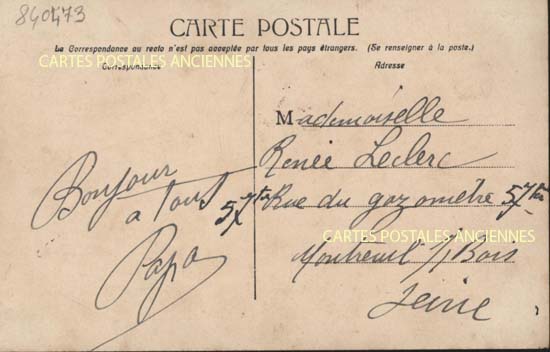 840473
CARTE POSTALE
La Correspondance au recto n'est pas acceptée par tous les pays étrangers. (Se renseigner à la poste.)
CARTES POSTALES ANCIENNES
Correspondance
Adresse
Bonjour
a tous
Papa
Mademoiselle
Renée Leclerc
57ter Rue du gazomètre 57ter
CARTES POSTALES ANCIENNES
Montreuil s/ Bois
Seine